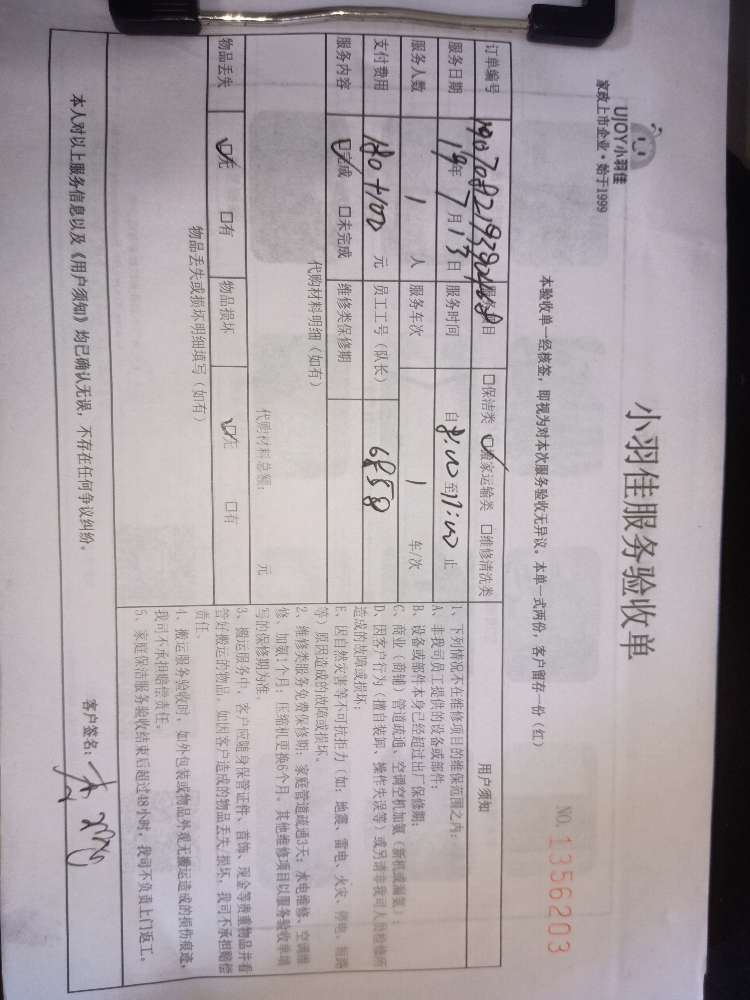 UJOY 小羽佳
家政上市企业·始于1999
小羽佳服务验收单
NO. 1356203
本验收单一经核签，即视为对本次服务验收无异议。本单一式两份，客户留存一份（红）
订单编号 服务项目 □保洁类 ☑搬家运输类 □维修清洗类
服务日期 19年 7月 13日 服务时间 自 8:00 至 17:00 止
服务人数 1 人 服务车次 1 车/次
支付费用 180+100 元 员工工号（队长） 6858
服务内容 ☑完成 □未完成 维修类保修期
代购材料明细（如有）
代购材料总额： 元
物品丢失 ☑无 □有 物品损坏 ☑无 □有
物品丢失或损坏明细填写（如有）
用户须知
1、下列情况不在维修项目的维保范围之内：
A、非我司员工提供的设备或部件；
B、设备或部件本身已经超过出厂保修期；
C、商业（商铺）管道疏通、空调空机加氨（新机或漏氨）；
D、因客户行为（擅自装卸、操作失误等）或另请非我司人员检修所
造成的故障或损坏；
E、因自然灾害等不可抗拒力（如：地震、雷电、火灾、停电、短路
等）原因造成的故障或损坏。
2、维修类服务免费保修期：家庭管道疏通3天；水电维修、空调维
修、加氨1个月；压缩机更换6个月。其他维修项目以服务验收单填
写的保修期为准。
3、搬运服务中，客户应随身保管证件、首饰、现金等贵重物品并看
管好搬运的物品，如因客户造成的物品丢失、损坏，我司不承担赔偿
责任。
4、搬运服务验收时，如外包装或物品外观无搬运造成的损伤痕迹，
我司不承担赔偿责任。
5、家庭保洁服务验收结束后超过48小时，我司不负责上门返工。
本人对以上服务信息以及《用户须知》均已确认无误，不存在任何争议纠纷。
客户签名：